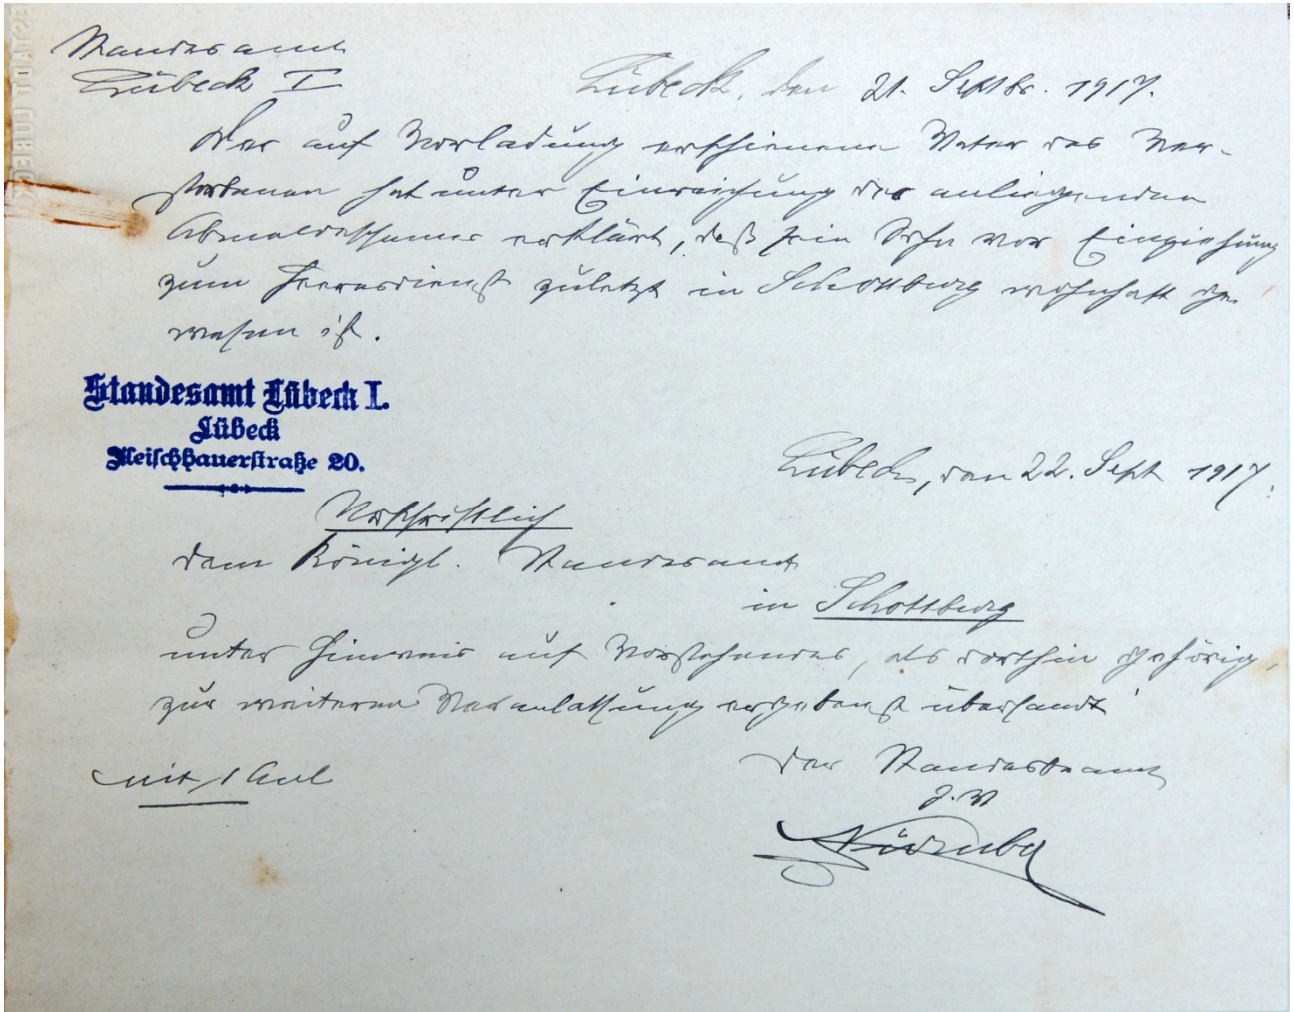 Standesamt
Lübeck I
Lübeck, den 21. Septbr. 1917.
Der auf Vorladung erschienene Vater des Ver-
storbenen hat unter Einreichung des anliegenden
Abmeldescheines erklärt, daß sein Sohn vor Einziehung
zum Heeresdienst zuletzt in Schottburg wohnhaft ge-
wesen ist.
Standesamt Lübeck I.
Lübeck
Fleischhauerstraße 20.
Lübeck, den 22. Sept 1917.
Urschriftlich
dem Königl. Standesamt
in Schottburg
unter Hinweis auf Vorstehendes, als dorthin gehörig,
zur weiteren Veranlassung ergebenst übersandt
mit 1 Anl
Der Standesbeamte
J. V